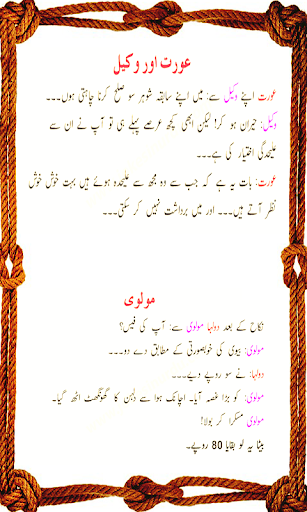 عورت اور وکیل
عورت اپنے وکیل سے: میں اپنے سابقہ شوہر سو صلح کرنا چاہتی ہوں۔۔۔
وکیل: حیران ہو کر! لیکن ابھی کچھ عرصے پہلے ہی تو آپ نے ان سے
علیحدگی اختیار کی ہے۔۔۔
عورت: بات یہ ہے کہ جب سے وہ مجھ سے علیحدہ ہوئے ہیں بہت خوش خوش
نظر آتے ہیں۔۔۔ اور میں برداشت نہیں کر سکتی۔۔۔
مولوی
نکاح کے بعد دولہا مولوی سے: آپ کی فیس؟
مولوی: بیوی کی خوبصورتی کے مطابق دے دو۔۔۔
دولہا: نے سو روپے دیے۔۔۔
مولوی: کو بڑا غصہ آیا۔ اچانک ہوا سے دلہن کا گھونگھٹ اٹھ گیا۔
مولوی مسکرا کر بولا!
بیٹا یہ لو بقایا 80 روپے۔